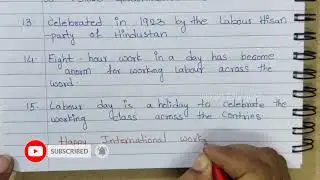 13. Celebrated in 1923 by the Labour Kisan
-party of Hindustan
14. Eight - hour work in a day has become
anorm for working labour across the
word.
15. Labour day is a holiday to celebrate the
working class across the Contries.
Happy International work
SUBSCRIBED